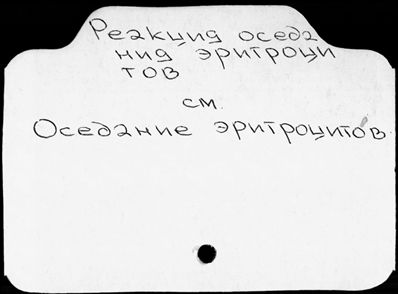 Реакция оседа
ния эритроци
тов
см.
Оседание эритроцитов